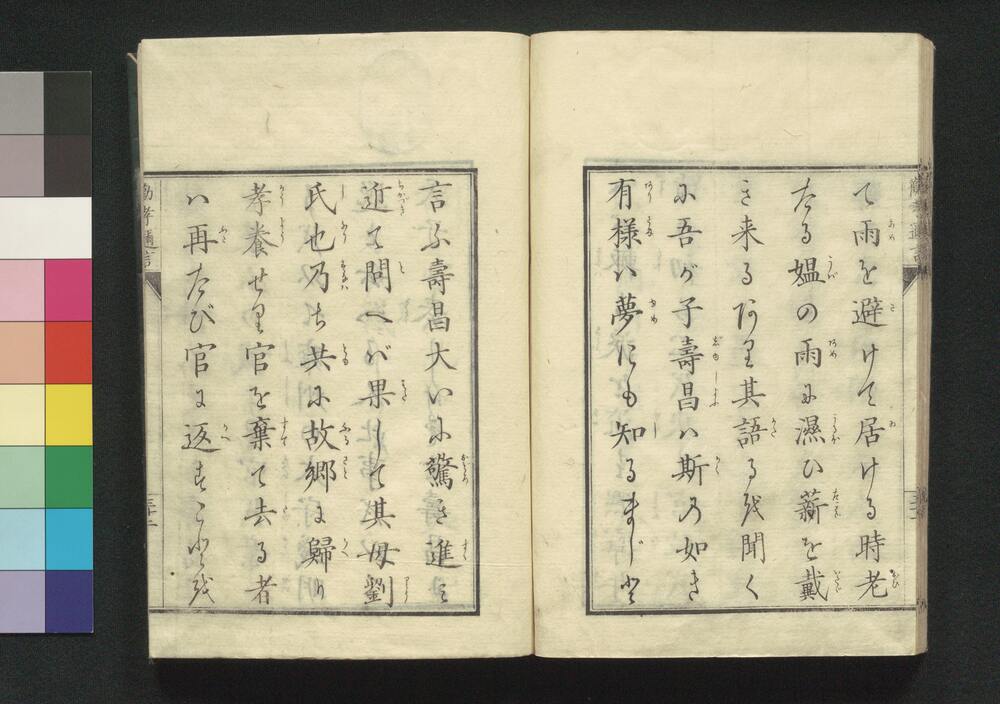 て雨を避けて居ける時老
たる媼の雨に濕ひ薪を戴
き来るあり其語るを聞く
に吾が子壽昌ハ斯の如き
有様ハ夢にも知るまじと
言ふ壽昌大いに驚き進ミ
近て問へバ果して其母劉
氏也乃ち共に故郷に歸り
孝養せり官を棄て去る者
ハ再たび官に返すことを
勸孝邇言